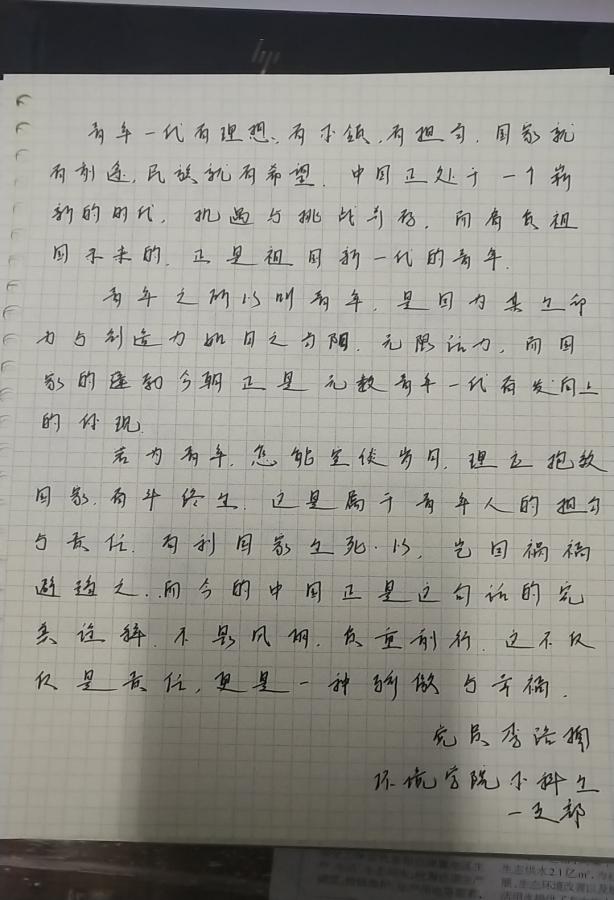 青年一代有理想、有本领、有担当,国家就
有前途,民族就有希望。中国正处于一个崭
新的时代,机遇与挑战并存,而肩负祖
国未来的,正是祖国新一代的青年。
青年之所以叫青年,是因为其生命
力与创造力如日之当阳,无限活力,而国
家的蓬勃今朝正是无数青年一代奋发向上
的体现。
若为青年,怎能空度岁月,理应报效
国家,奋斗终生。这是属于青年人的担当
与责任。苟利国家生死以,岂因祸福
避趋之..而今的中国正是这句话的完
美诠释。不畏风雨,负重前行,这不仅
仅是责任,更是一种骄傲与幸福。
党员李
环境学院本科生
一支部
生态供水2.1亿m³,